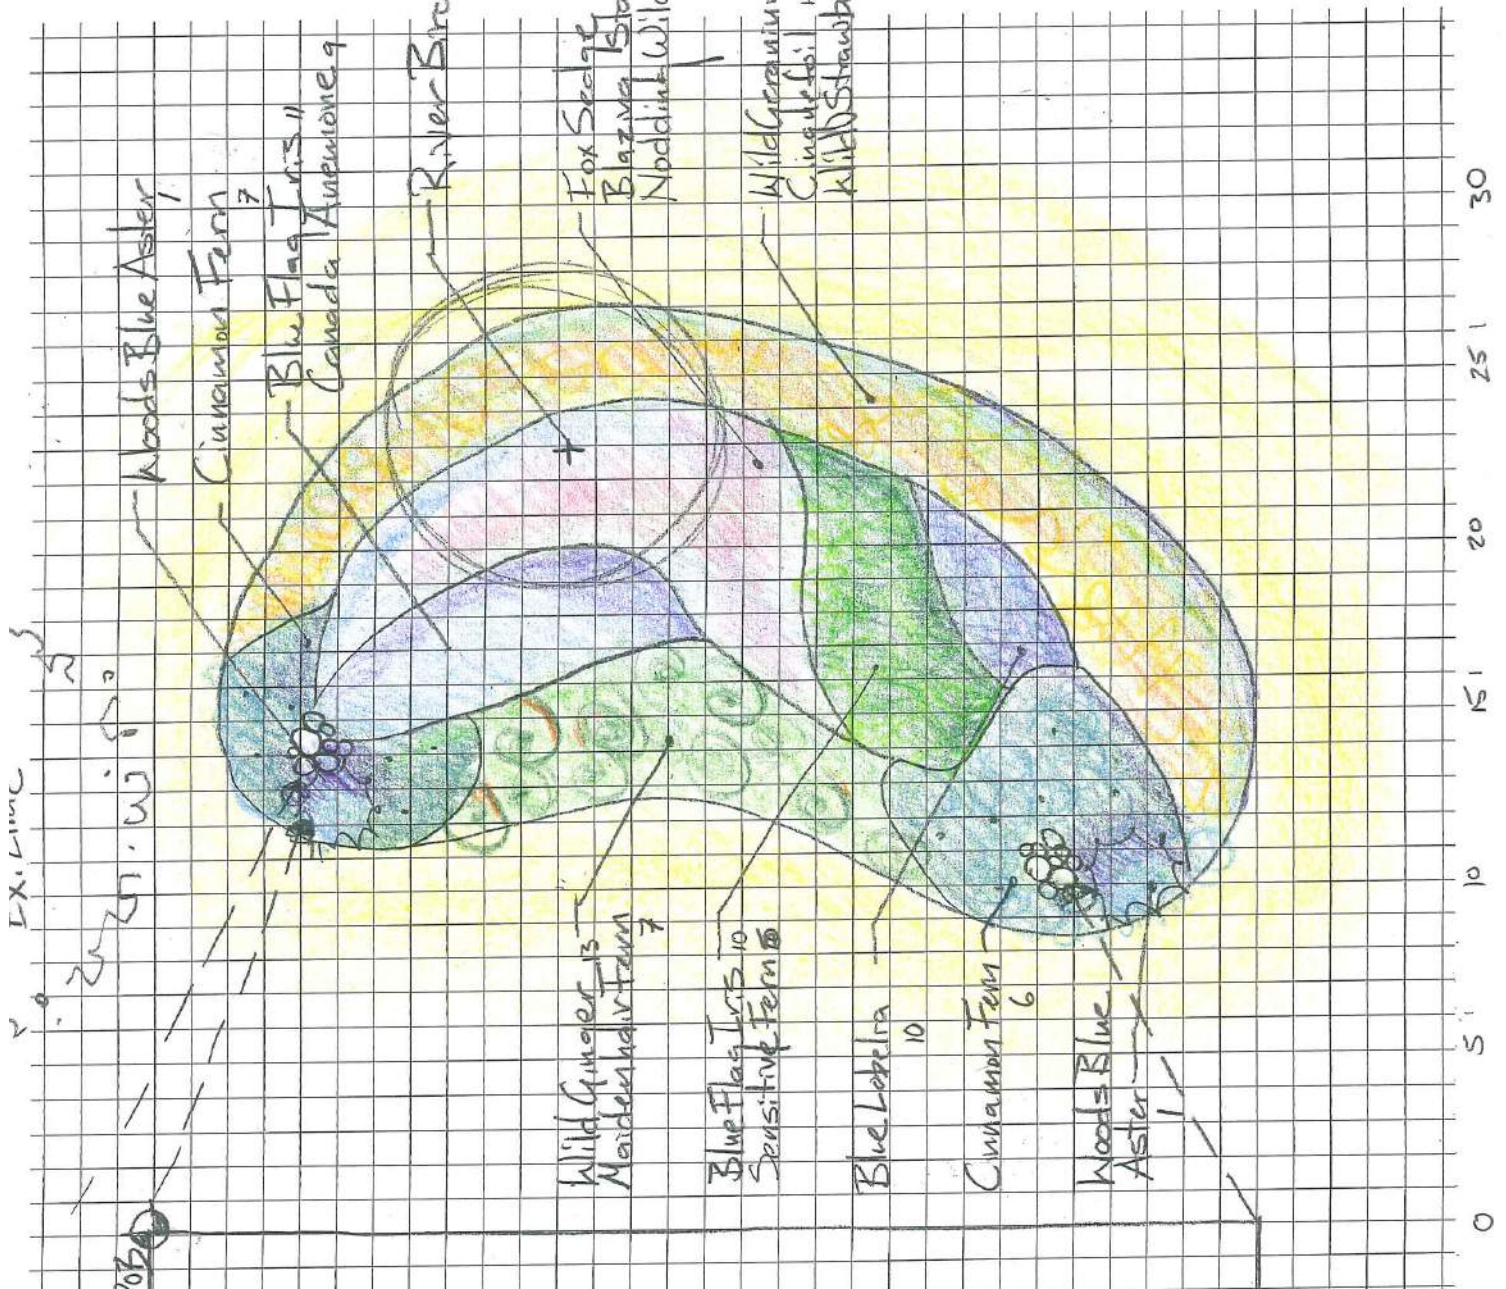 Woods Blue Aster
1
Cinnamon Fern
7
Blue Flag Iris 11
Canada Anemone 9
River Birc
Fox Sedge
Blazing Sta
Nodding Wild
Wild Geraniu
Cinquefoil
Wild Strawb
Wild Ginger 13
Maidenhair Fern
7
Blue Flag Iris 10
Sensitive Fern
Blue Lobelia
10
Cinnamon Fern
6
Woods Blue
Aster
1
0
5'
10
15'
20
25'
30